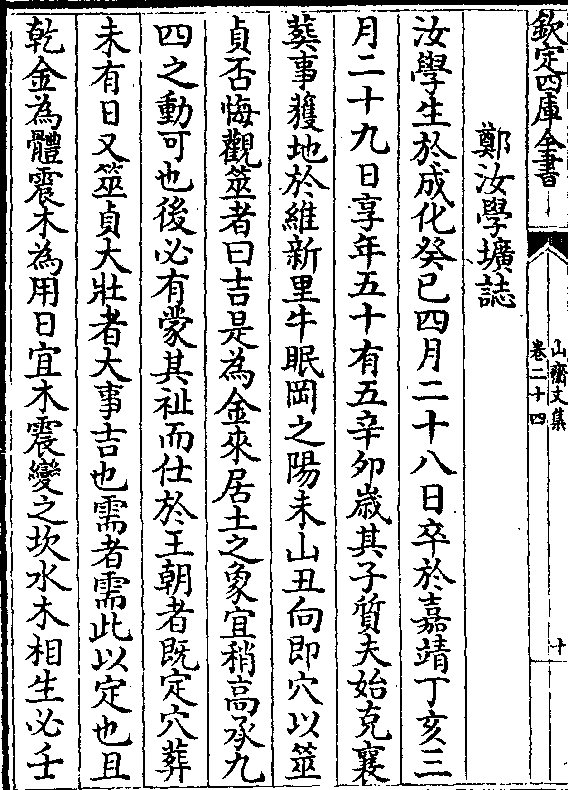 欽定四庫全書
山齋文集
卷二十四
十
鄭汝學壙誌
汝學生於成化癸巳四月二十八日卒於嘉靖丁亥三
月二十九日享年五十有五辛卯歲其子質夫始克襄
葬事獲地於維新里牛眠岡之陽未山丑向即穴以筮
貞否悔觀筮者曰吉是為金來居土之象宜稍高承九
四之動可也後必有蒙其祉而仕於王朝者既定穴葬
未有日又筮貞大壯者大事吉也需者需此以定也且
乾金為體震木為用日宜木震變之坎水木相生必壬